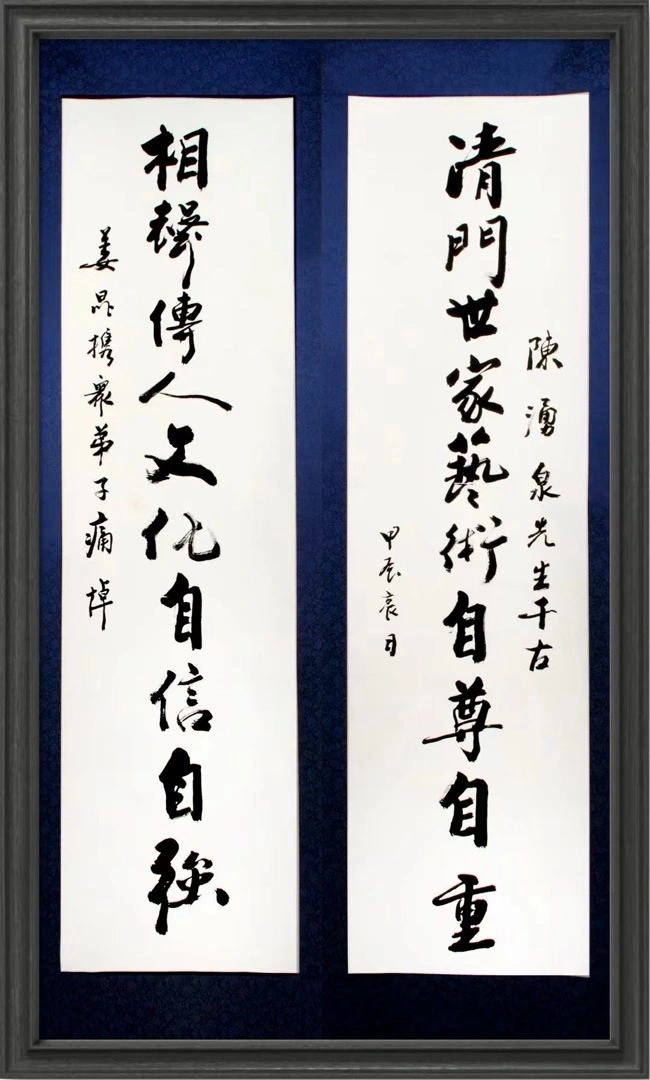 陳湧泉先生千古
清門世家藝術自尊自重
甲辰哀月
相聲傳人文化自信自強
姜昆攜眾弟子痛悼